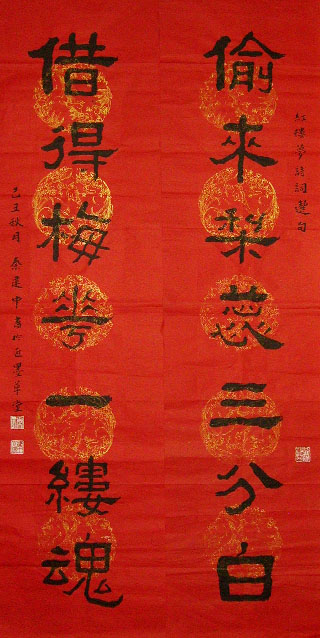 紅樓夢詩詞選句
偷來梨蕊三分白
借得梅花一縷魂
己丑秋月秦建中書於匠墨草堂